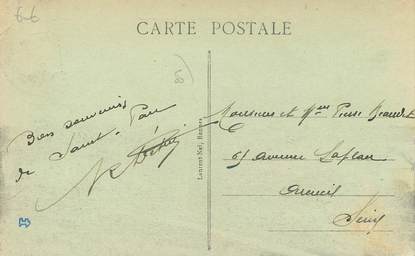 6-6
CARTE POSTALE
Bons souvenirs
de Saint-Pair
Laurent-Nel, Rennes
Monsieur et Mme Pierre
61 avenue Laplace
Arcueil
Seine